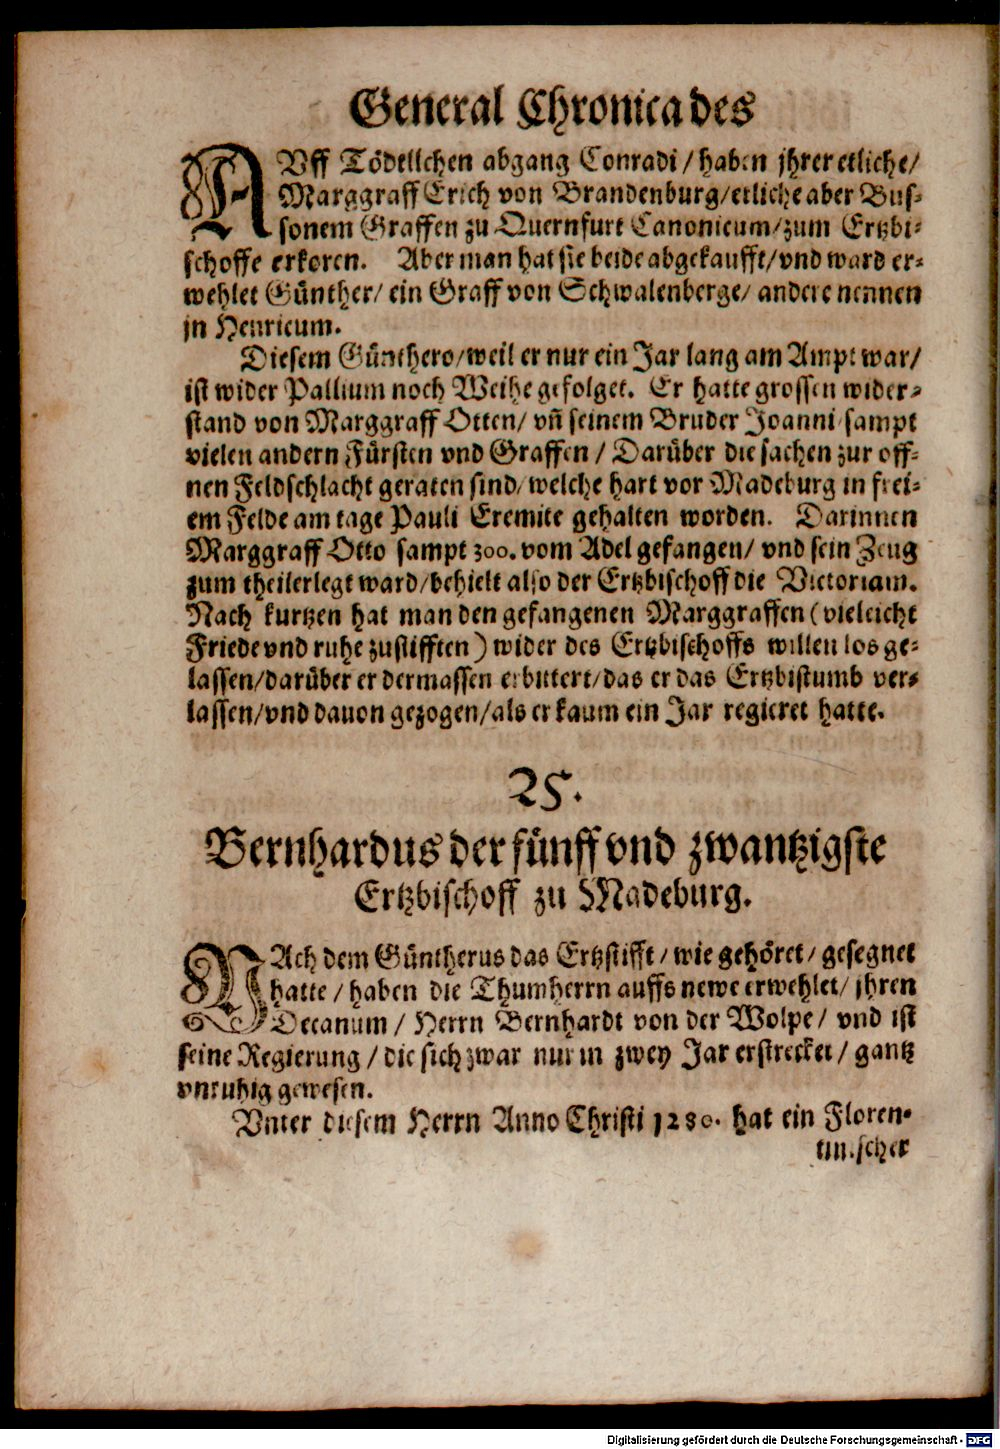 General Chronica des
AVff Tödtlichen abgang Conradi / haben jhrer etliche /
Marggraff Erich von Brandenburg / etliche aber Bus-
sonem Graffen zu Quernfurt Canonicum / zum Ertzbi-
schoffe erkoren. Aber man hat sie beide abgekaufft / vnd ward er-
wehlet Günther / ein Graff von Schwalenberge / andere nennen
jn Henricum.
Diesem Günthero / weil er nur ein Jar lang am Ampt war /
ist wider Pallium noch Weihe gefolget. Er hatte grossen wider-
stand von Marggraff Otten / vñ seinem Bruder Joanni sampt
vielen andern Fürsten vnd Graffen / Darüber die sachen zur off-
nen Feldschlacht geraten sind / welche hart vor Madeburg in frei-
em Felde am tage Pauli Eremite gehalten worden. Darinnen
Marggraff Otto sampt 300. vom Adel gefangen / vnd sein Zeug
zum theil erlegt ward / behielt also der Ertzbischoff die Victoriam.
Nach kurtzen hat man den gefangenen Marggraffen ( vieleicht
Friede vnd ruhe zustifften ) wider des Ertzbischoffs willen los ge-
lassen / darüber er dermassen erbittert / das er das Ertzbistumb ver-
lassen / vnd dauon gezogen / als er kaum ein Jar regieret hatte.
25.
Bernhardus der fünff vnd zwantzigste
Ertzbischoff zu Madeburg.
NAch dem Güntherus das Ertzstifft / wie gehöret / gesegnet
hatte / haben die Thumherrn auffs newe erwehlet / jhren
Decanum / Herrn Bernhardt von der Wolpe / vnd ist
seine Regierung / die sich zwar nur in zwey Jar erstrecket / gantz
vnruhig gewesen.
Vnter diesem Herrn Anno Christi 1280. hat ein Floren-
tinischer
Digitalisierung gefördert durch die Deutsche Forschungsgemeinschaft - DFG